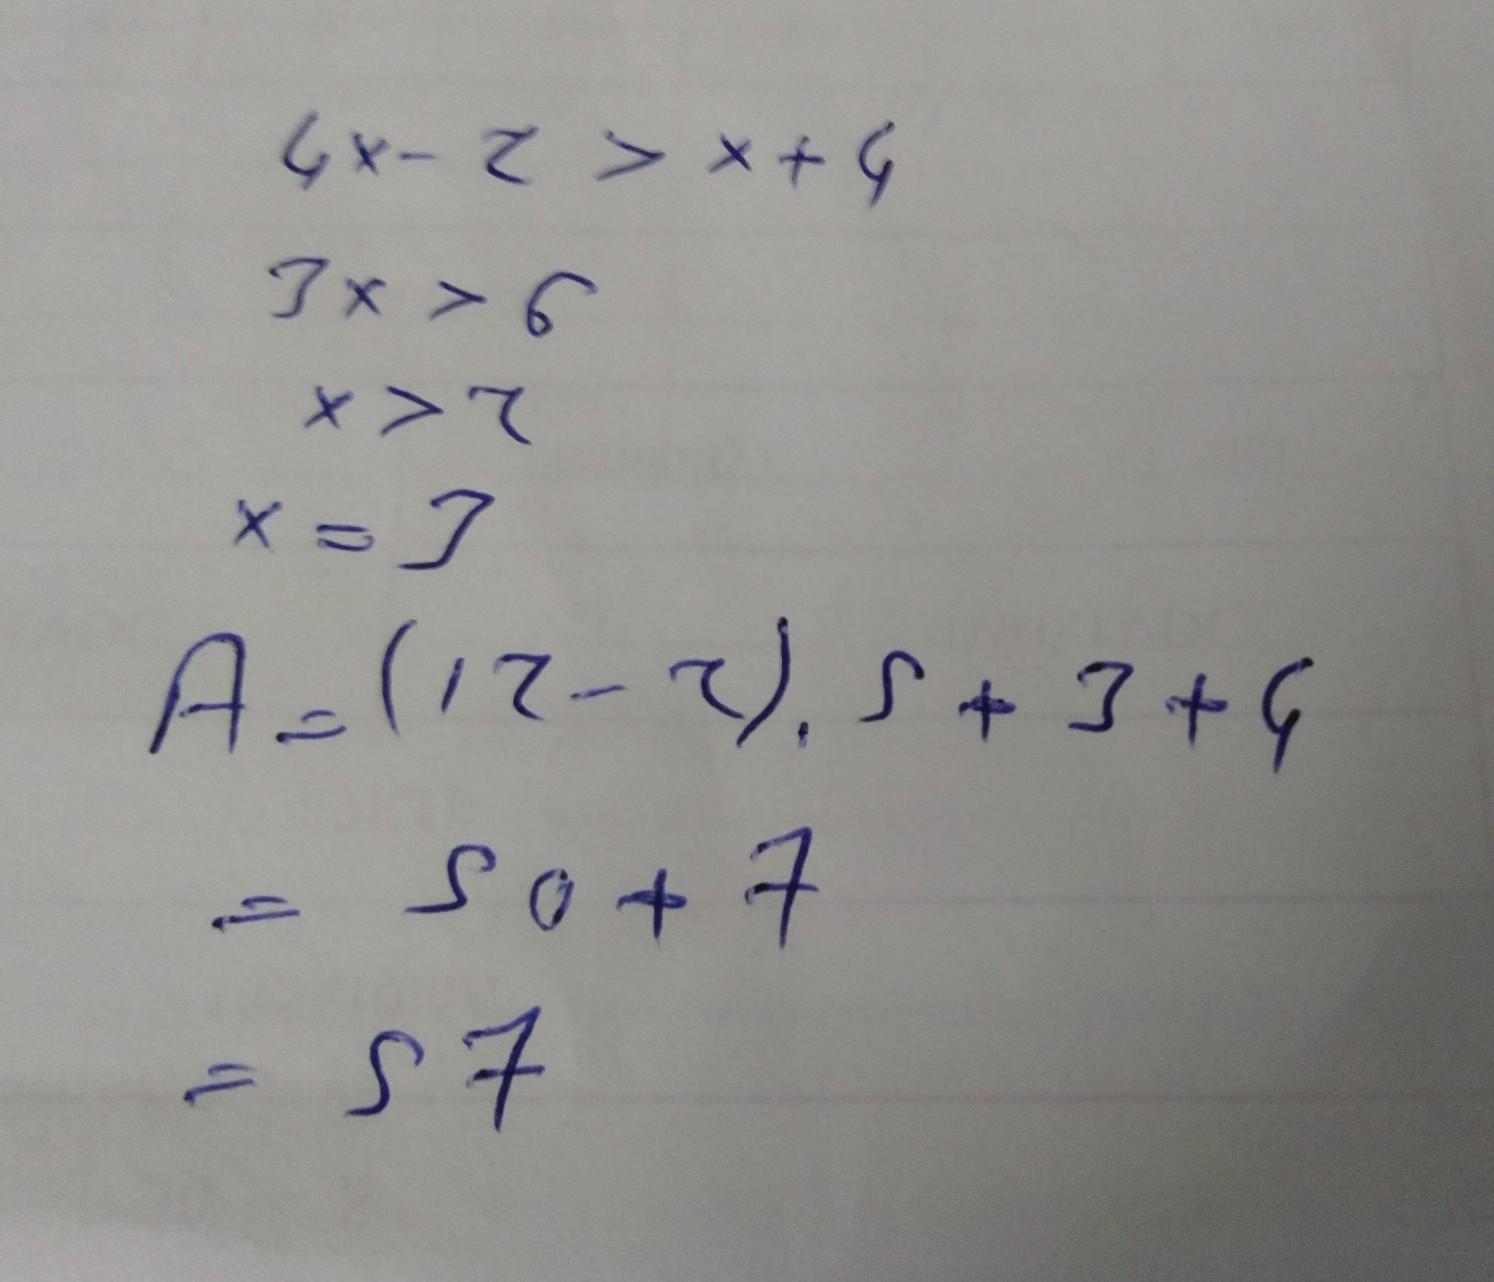 4x - 2 > x + 4
3x > 6
x > 2
x = 3
A = (12 - 2) . 5 + 3 + 4
= 50 + 7
= 57